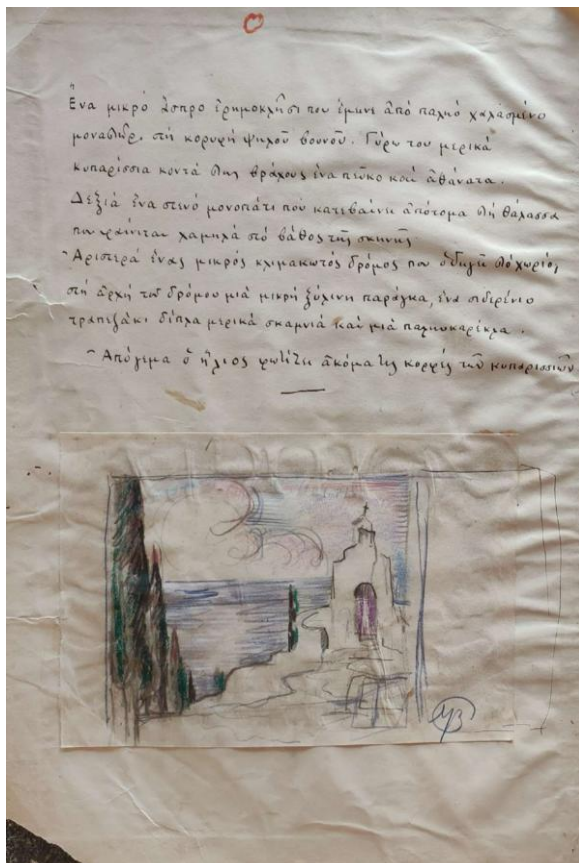 Ἕνα μικρό ἄσπρο ἐρημοκλῆσι που ἔμεινε ἀπό παληό χαλασμένο
μοναστῆρι, στή κορυφή ψηλοῦ βουνοῦ. Γύρω του μερικά
κυπαρίσσια κοντά στους βράχους ἕνα πεῦκο καί ἀθάνατα.
Δεξιά ἕνα στενό μονοπάτι πού κατεβαίνει ἀπότομα στή θάλασσα
που φαίνεται χαμηλά στό βάθος τῆς σκηνῆς
Ἀριστερά ἕνας μικρός κλιμακωτός δρόμος που ὁδηγεῖ στό χωριό,
στή ἀρχή τοῦ δρόμου μιά μικρή ξύλινη παράγκα, ἕνα σιδερένιο
τραπεζάκι δίπλα μερικά σκαμνιά καί μιά παληοκαρέκλα.
Ἀπόγεμα ὁ ἥλιος φωτίζει ἀκόμα τις κορφές τῶν κυπαρισσιῶν